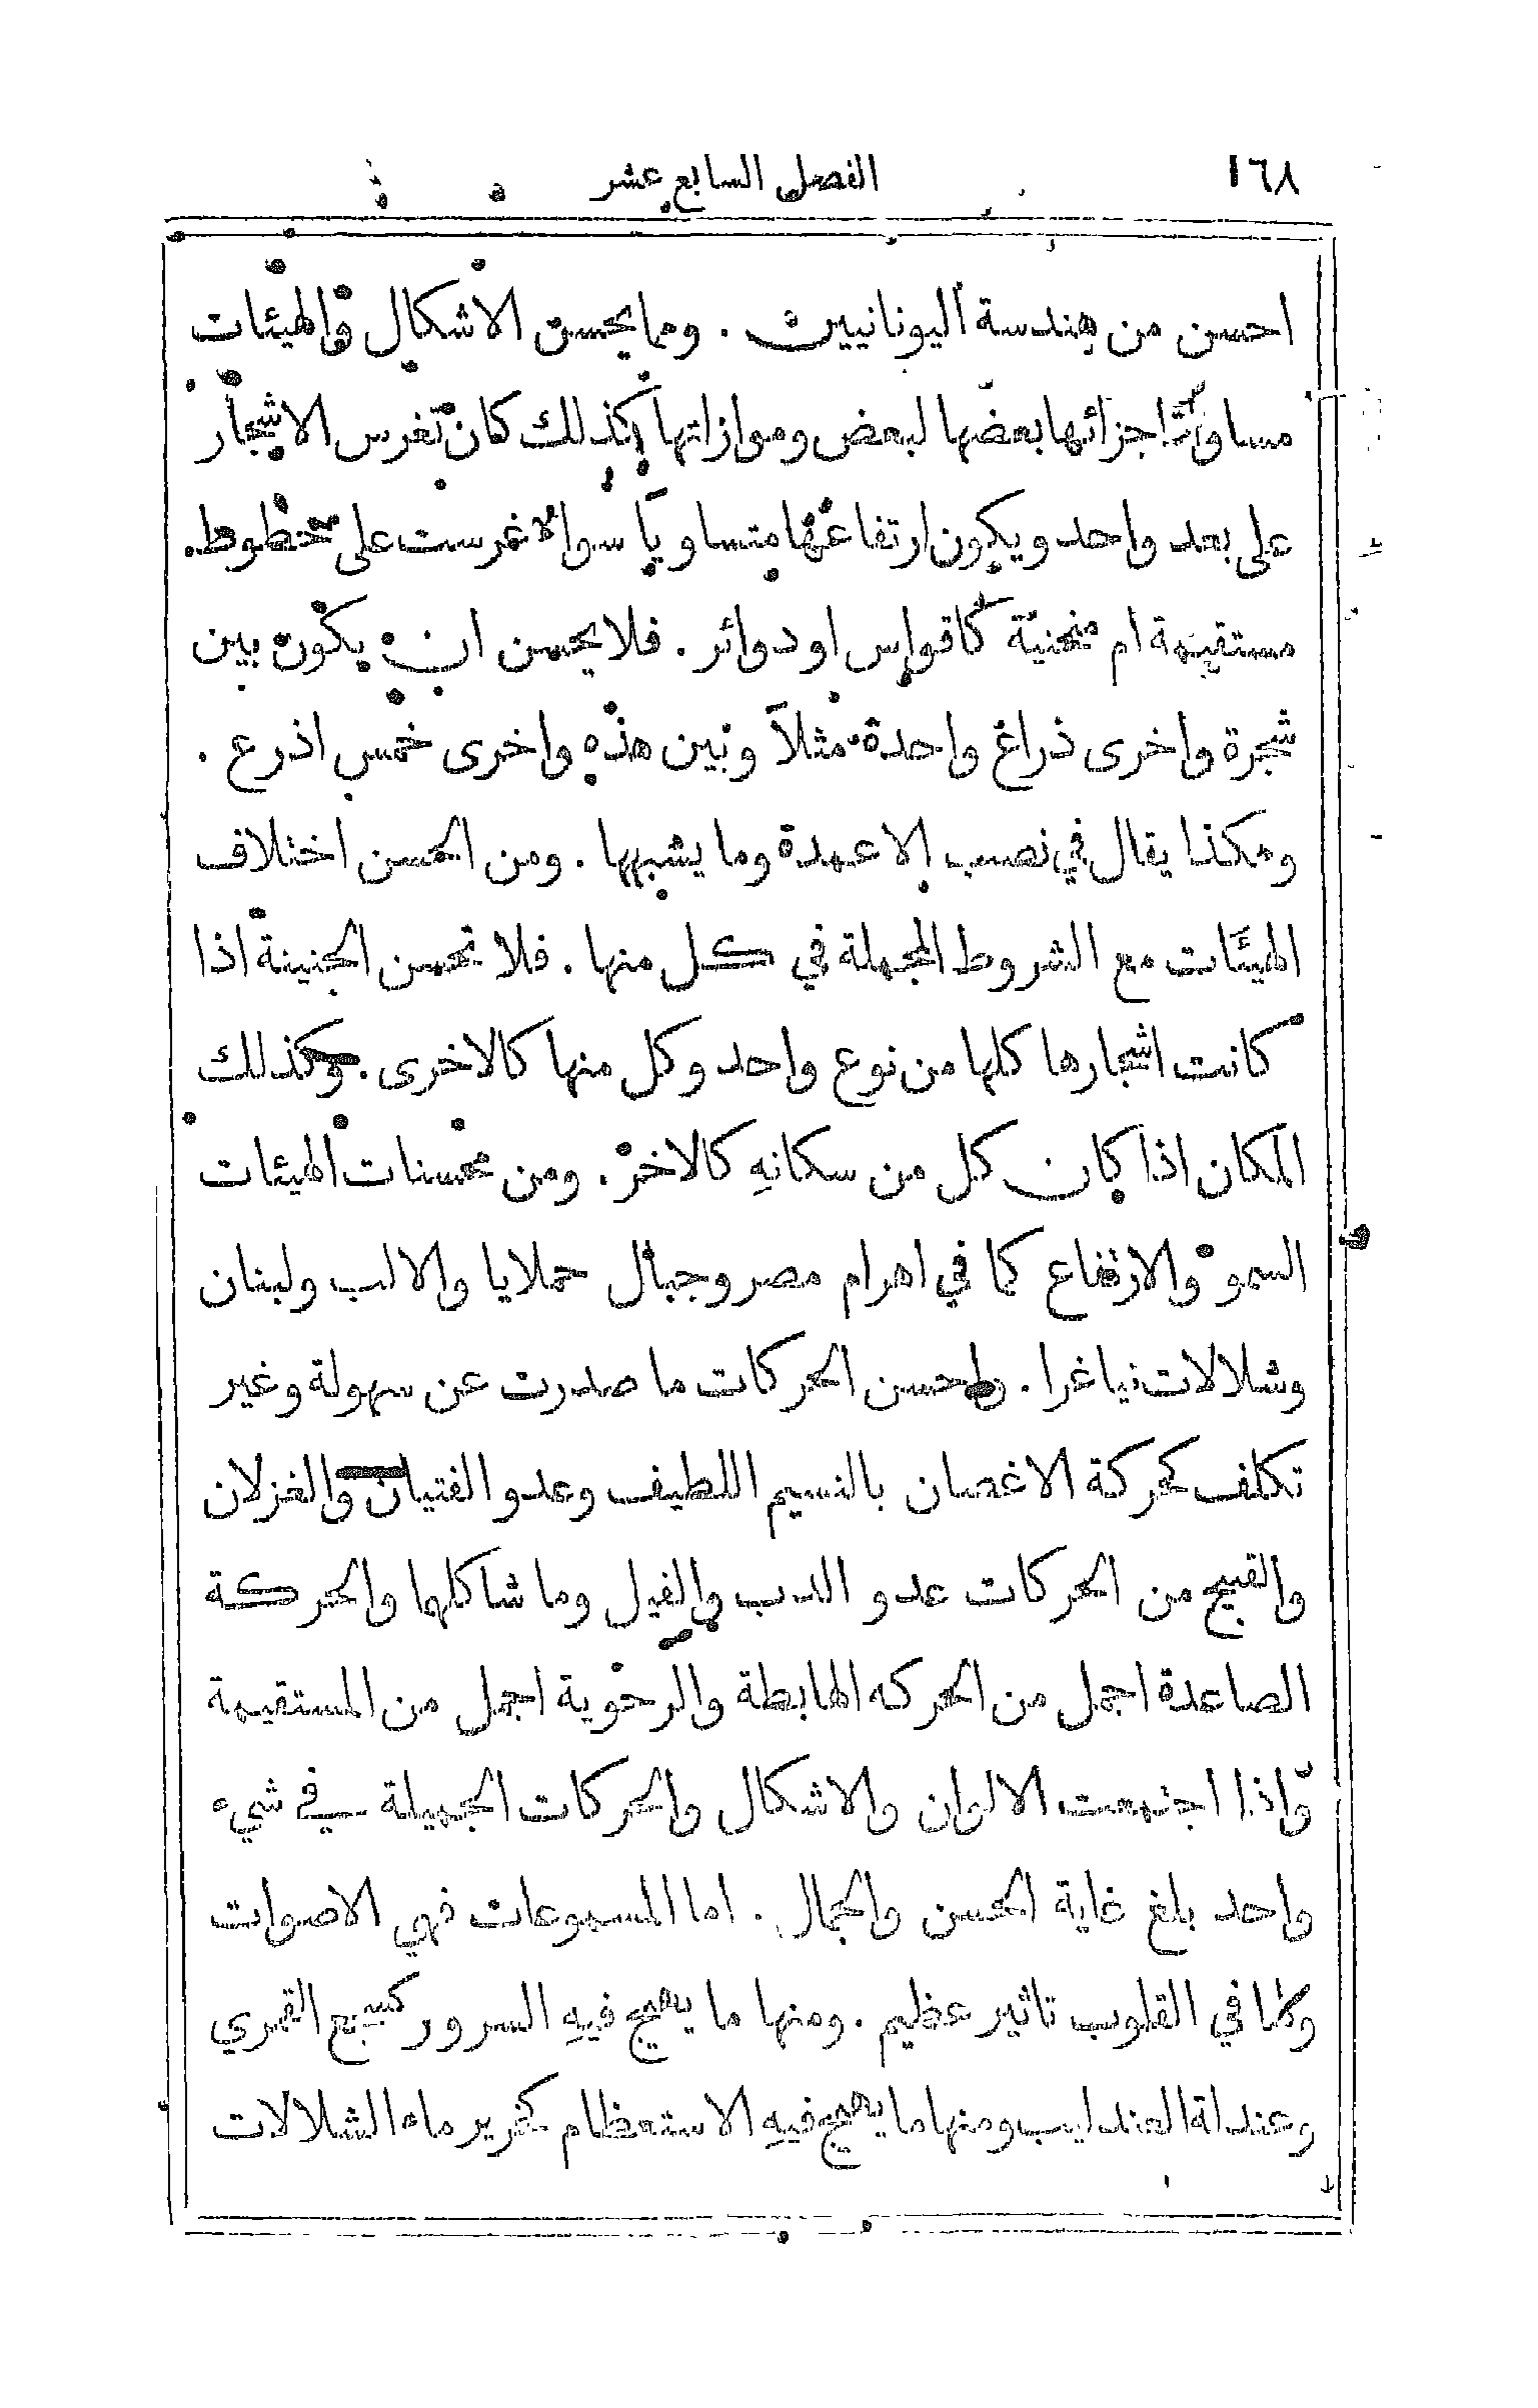 ١٦٨ الفصل السابع عشر
احسن من هندسة اليونانيين . ومما يحسن الاشكال والهيئات
مساواة اجزائها بعضها لبعض وموازاتها كذلك كان تغرس الاشجار
على بعد واحد ويكون ارتفاعها متساويًا سوالا غرست على خطوط
مستقيمة ام منحنية كاقواس او دوائر . فلا يحسن ان يكون بين
شجرة واخرى ذراع واحدة مثلاً وبين هذه واخرى خمس اذرع .
وهكذا يقال في نصب الاعمدة وما يشبهها . ومن الحسن اختلاف
الهيئات مع الشروط المجملة في كل منها . فلا تحسن الجنينة اذا
كانت اشجارها كلها من نوع واحد وكل منها كالاخرى . وكذلك
المكان اذا كان كل من سكانهِ كالاخر . ومن محسنات الهيئات
السمو والارتفاع كما في اهرام مصر وجبال حملايا والالب ولبنان
وشلالات نياغرا . واحسن الحركات ما صدرت عن سهولة وغير
تكلف كحركة الاغصان بالنسيم اللطيف وعدو الفتيان والغزلان
والقبيح من الحركات عدو الدب والفيل وما شاكلها والحركة
الصاعدة اجمل من الحركه الهابطة والرحوية اجمل من المستقيمة
واذا اجتمعت الالوان والاشكال والحركات الجميلة في شيء
واحد بلغ غاية الحسن والجمال . اما المسموعات فهي الاصوات
ولها في القلوب تاثير عظيم . ومنها ما يهيج فيهِ السرور كسجع القمري
وعندلة العندليب ومنها ما يهيج فيهِ الاستعظام كخرير ماء الشلالات